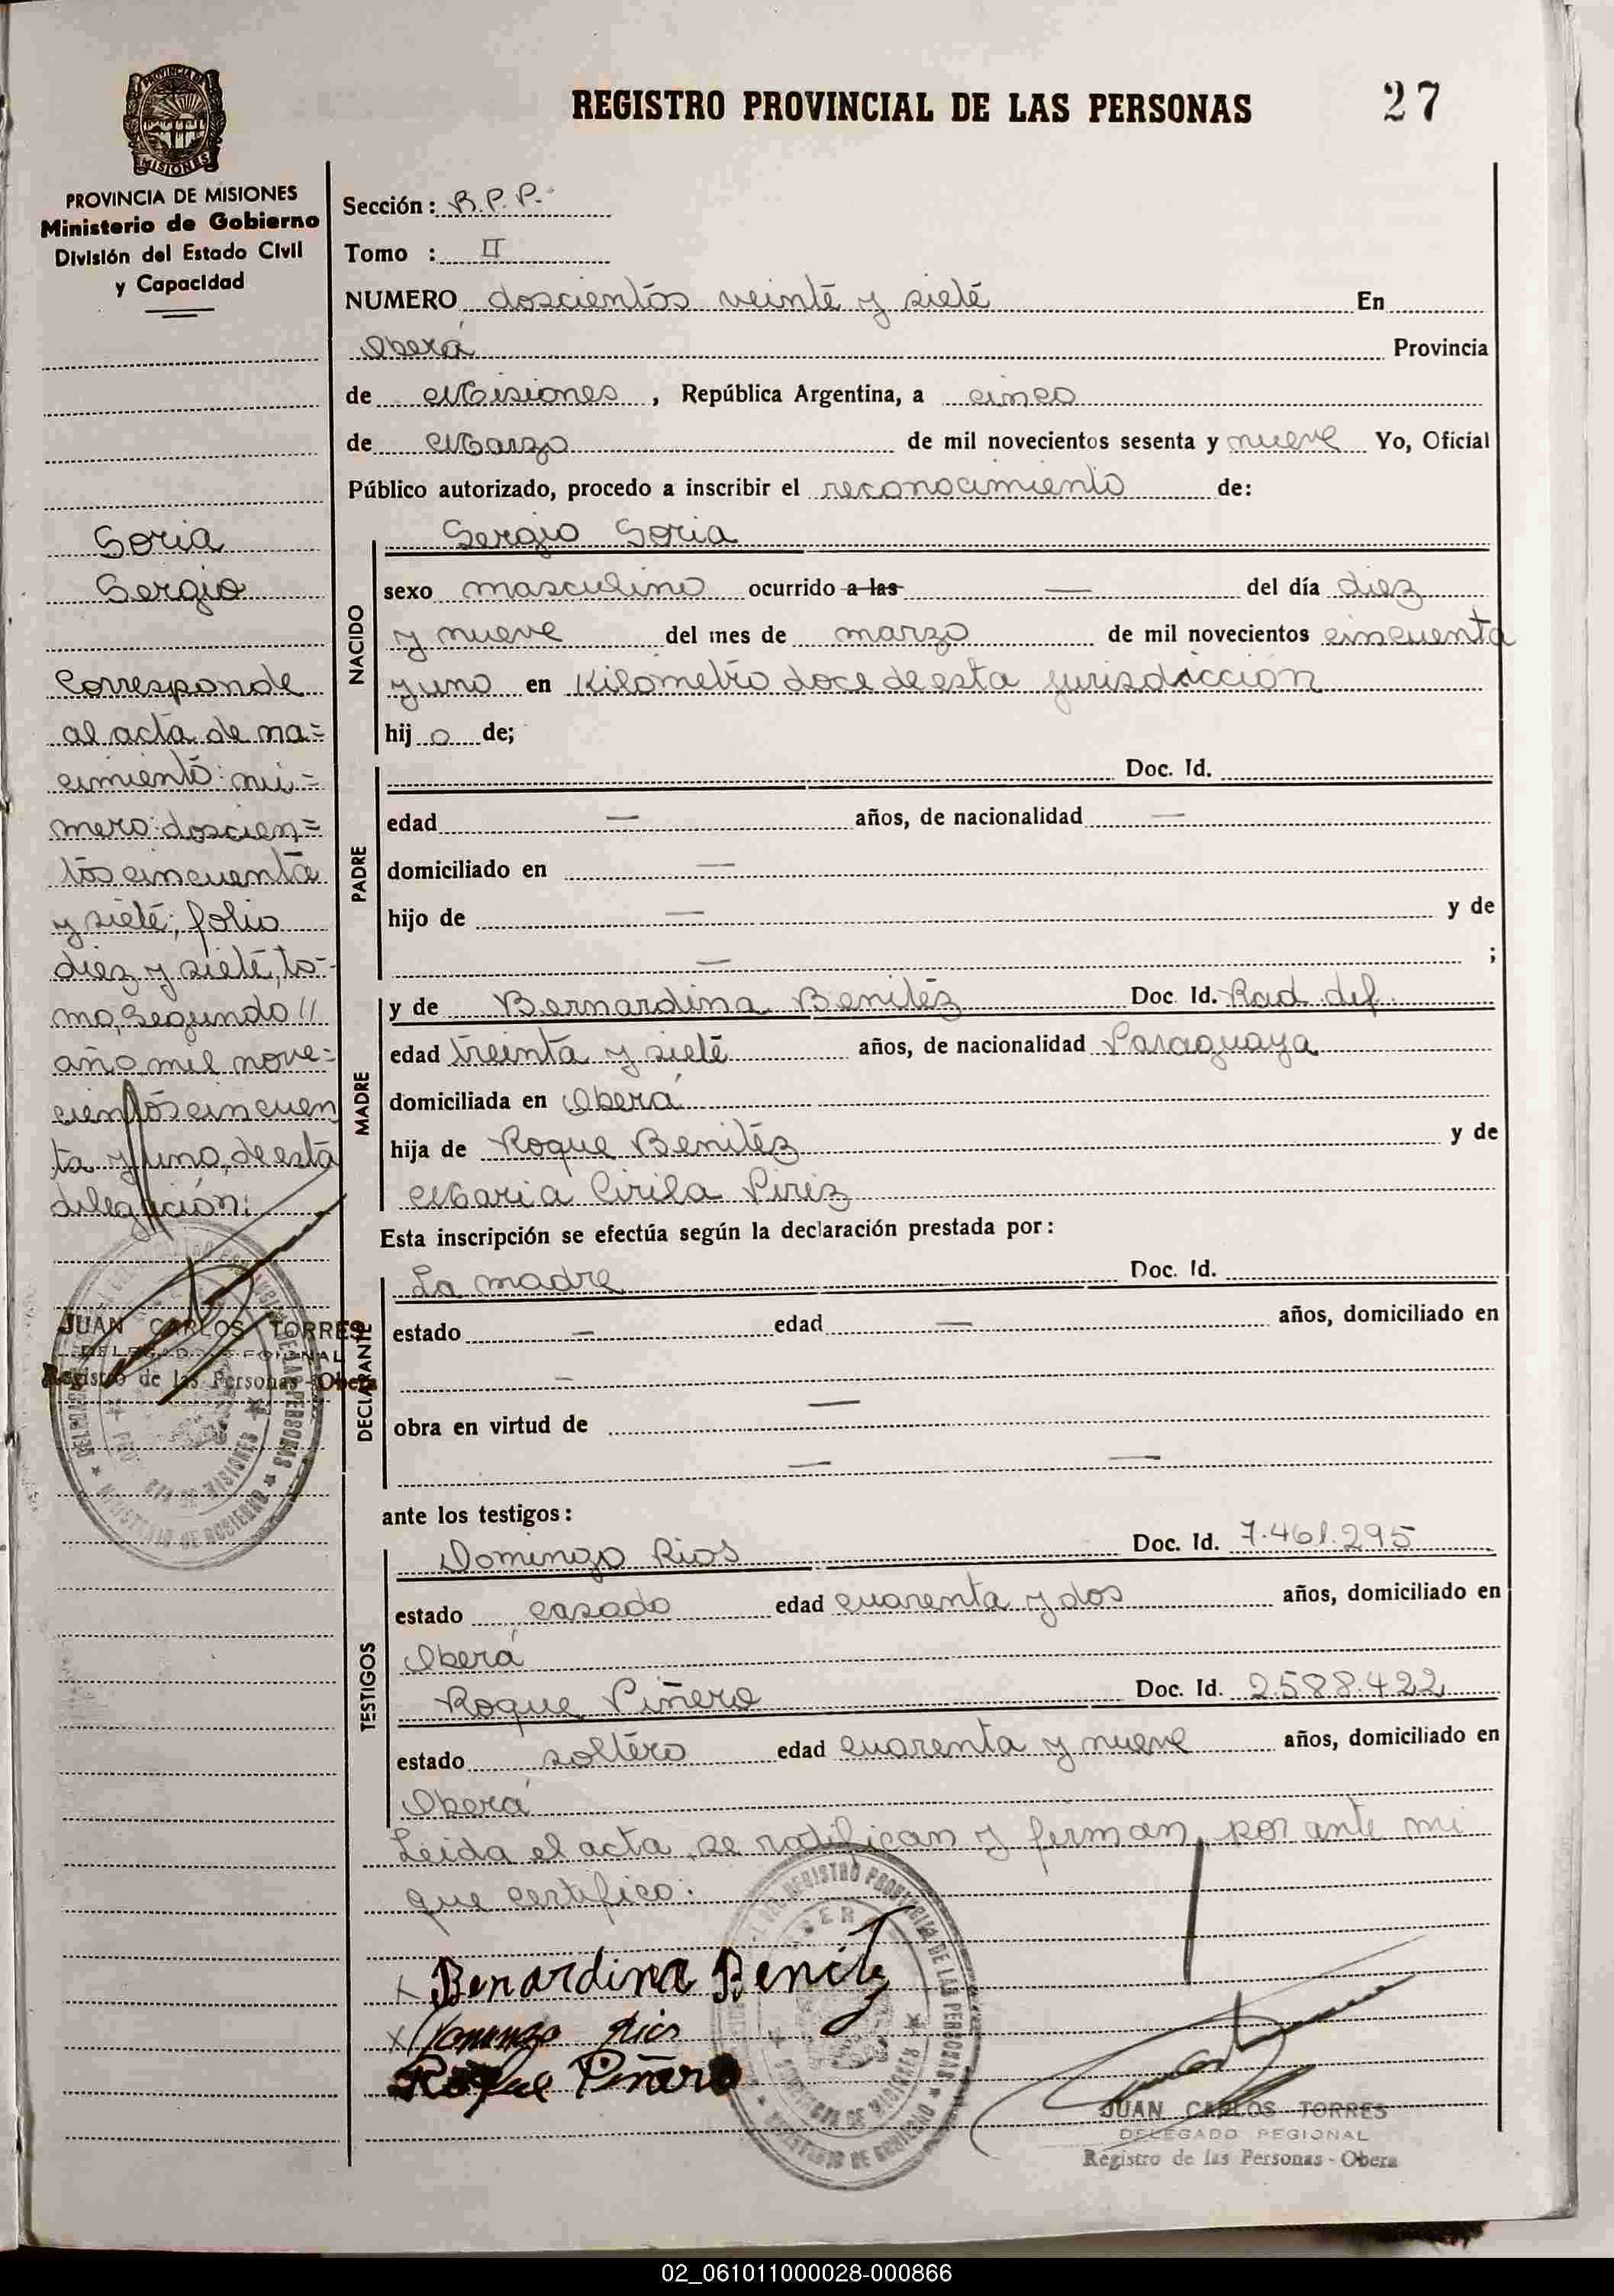 REGISTRO PROVINCIAL DE LAS PERSONAS 27
PROVINCIA DE MISIONES
Ministerio de Gobierno
División del Estado Civil
y Capacidad
Soria
Sergio
Corresponde
al acta de na=
cimiento: nú=
mero: doscien=
tos cincuenta
y siete; folio
diez y siete, to-
mo, Segundo //
año mil nove=
cientos cincuen
ta y uno, de esta
delegación:
JUAN CARLOS TORRES
DELEGADO REGIONAL
Registro de las Personas - Obera
Sección: R.P.P.
Tomo : II
NUMERO doscientos veinte y siete En
Oberá Provincia
de Misiones, República Argentina, a cinco
de Marzo de mil novecientos sesenta y nueve Yo, Oficial
Público autorizado, procedo a inscribir el reconocimiento de:
NACIDO
Sergio Soria
sexo masculino ocurrido a las — del día diez
y nueve del mes de marzo de mil novecientos cincuenta
y uno en Kilometro doce de esta jurisdiccion
hijo de;
PADRE
Doc. Id.
edad — años, de nacionalidad —
domiciliado en —
hijo de — y de
— ;
MADRE
y de Bernardina Benitéz Doc. Id. Rad. def.
edad treinta y siete años, de nacionalidad Paraguaya
domiciliada en Oberá
hija de Roque Benitéz y de
Maria Cirila Piriz
Esta inscripción se efectúa según la declaración prestada por:
DECLARANTE
La madre Doc. Id.
estado — edad — años, domiciliado en
—
obra en virtud de —
— —
ante los testigos:
TESTIGOS
Domingo Rios Doc. Id. 7.461.295
estado casado edad cuarenta y dos años, domiciliado en
Oberá
Roque Piñero Doc. Id. 2.588.422
estado soltero edad cuarenta y nueve años, domiciliado en
Oberá
Leida el acta, se ratifican y firman, por ante mi
que certifico:
x Benardina Benitz
x Domingo Rios
Roque Piñero
JUAN CARLOS TORRES
DELEGADO REGIONAL
Registro de las Personas - Obera
02_061011000028-000866